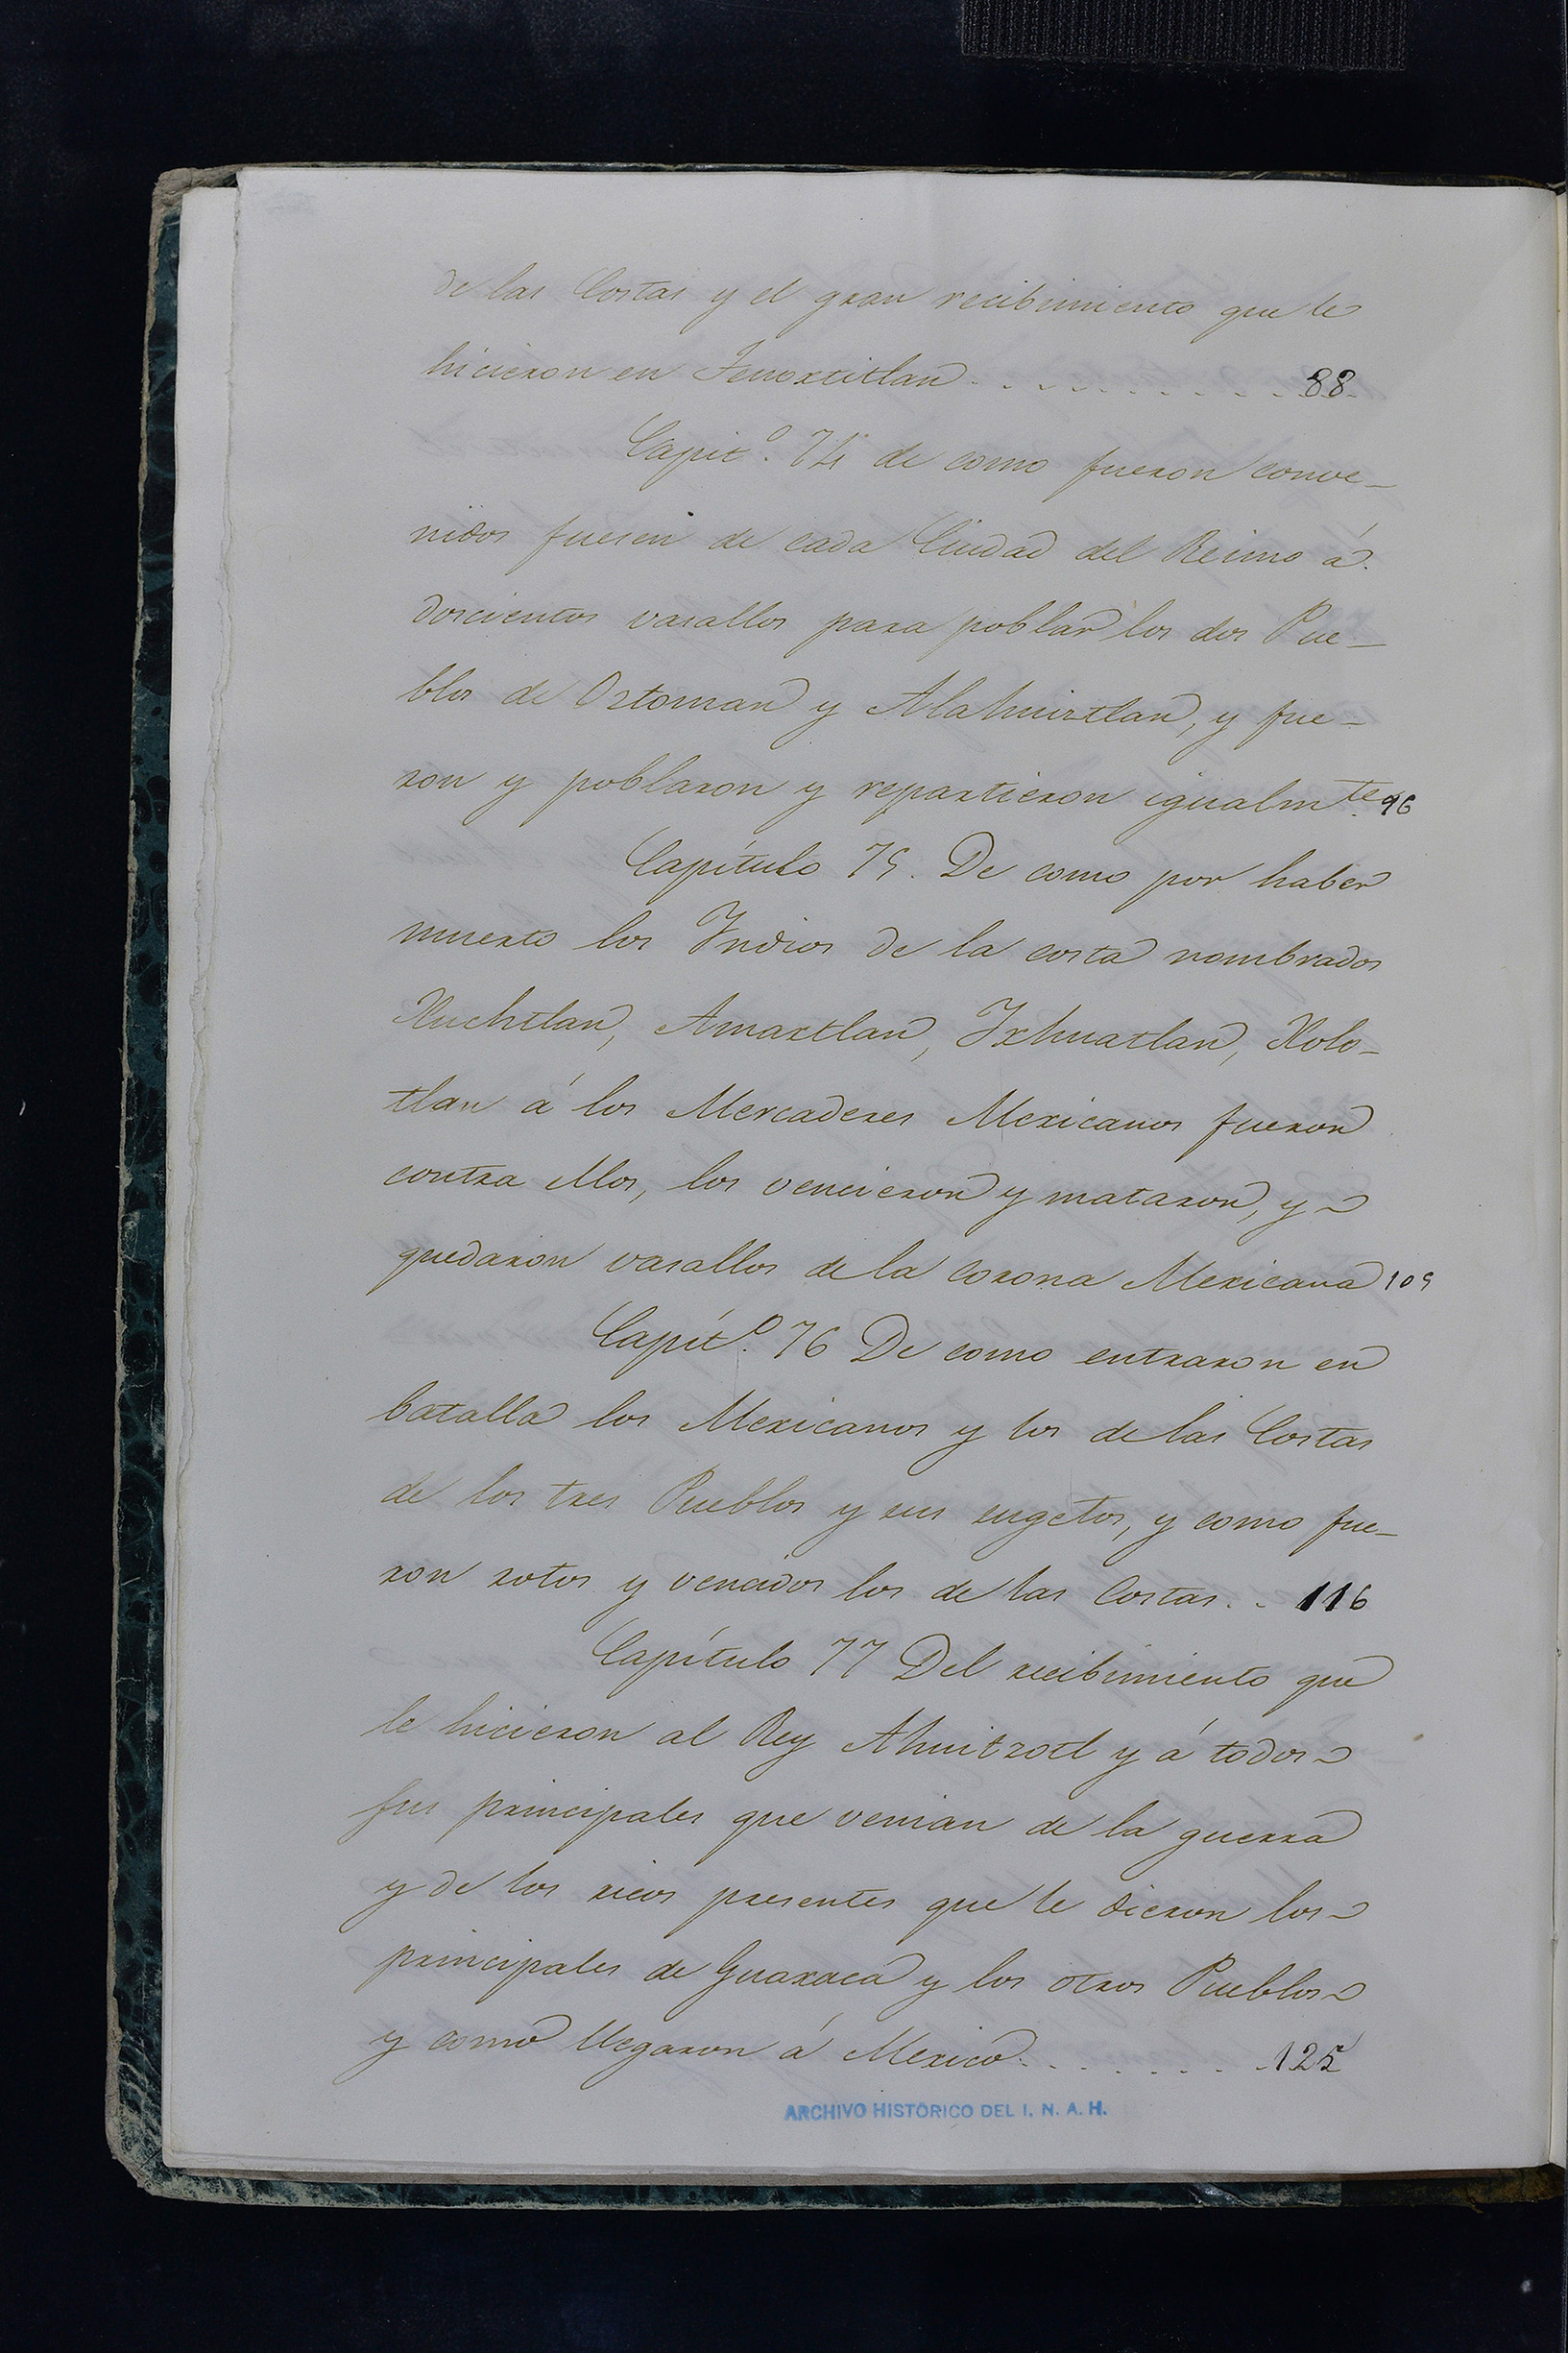 de las Costas y el gran recibimiento que le
hicieron en Tenoxtitlan . . . . . . . . . . 88.
Capit.º 74 de como fueron conve-
nidos fuesen de cada Ciudad del Reino á
doscientos vasallos para poblar los dos Pue-
blos de Oztoman y Alahuiztlan, y fue-
ron y poblaron y repartieron igualm.te 96
Capítulo 75. De como por haber
muerto los Yndios de la costa nombrados
Xuchtlan, Amaxtlan, Yxhuatlan, Xolo-
tlan á los Mercaderes Mexicanos fueron
contra ellos, los vencieron y mataron, y
quedaron vasallos de la corona Mexicana 105
Capít.º 76 De como entraron en
batalla los Mexicanos y los de las Costas
de los tres Pueblos y sus sugetos, y como fue-
ron rotos y vencidos los de las Costas. . 116
Capítulo 77 Del recibimiento que
le hicieron al Rey Ahuitzotl y á todos
sus principales que venian de la guerra
y de los ricos presentes que le dieron los
principales de Guaxaca y los otros Pueblos
y como llegaron á Mexico. . . . . . . 125
ARCHIVO HISTORICO DEL I. N. A. H.